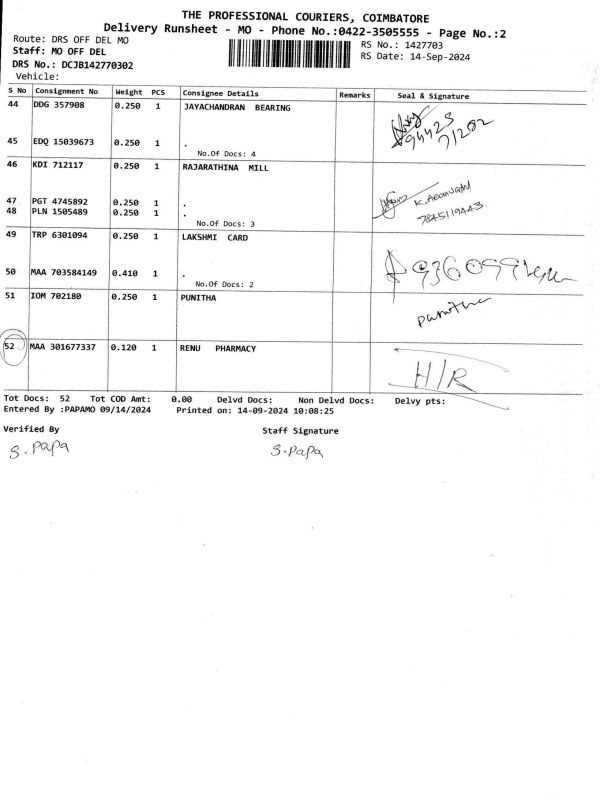 THE PROFESSIONAL COURIERS, COIMBATORE
Delivery Runsheet - MO - Phone No.:0422-3505555 - Page No.:2
Route: DRS OFF DEL MO RS No.: 1427703
Staff: MO OFF DEL RS Date: 14-Sep-2024
DRS No.: DCJB142770302
Vehicle:
S No Consignment No Weight PCS Consignee Details Remarks Seal & Signature
44 DDG 357908 0.250 1 JAYACHANDRAN BEARING
94423
71202
45 EDQ 15039673 0.250 1 .
No.Of Docs: 4
46 KDI 712117 0.250 1 RAJARATHINA MILL
47 PGT 4745892 0.250 1 .
48 PLN 1505489 0.250 1 .
7845119443
No.Of Docs: 3
49 TRP 6301094 0.250 1 LAKSHMI CARD
50 MAA 703584149 0.410 1 .
No.Of Docs: 2
51 IOM 702180 0.250 1 PUNITHA
punitha
52 MAA 301677337 0.120 1 RENU PHARMACY
H/R
Tot Docs: 52 Tot COD Amt: 0.00 Delvd Docs: Non Delvd Docs: Delvy pts:
Entered By :PAPAMO 09/14/2024 Printed on: 14-09-2024 10:08:25
Verified By Staff Signature
S.PAPA S.PAPA